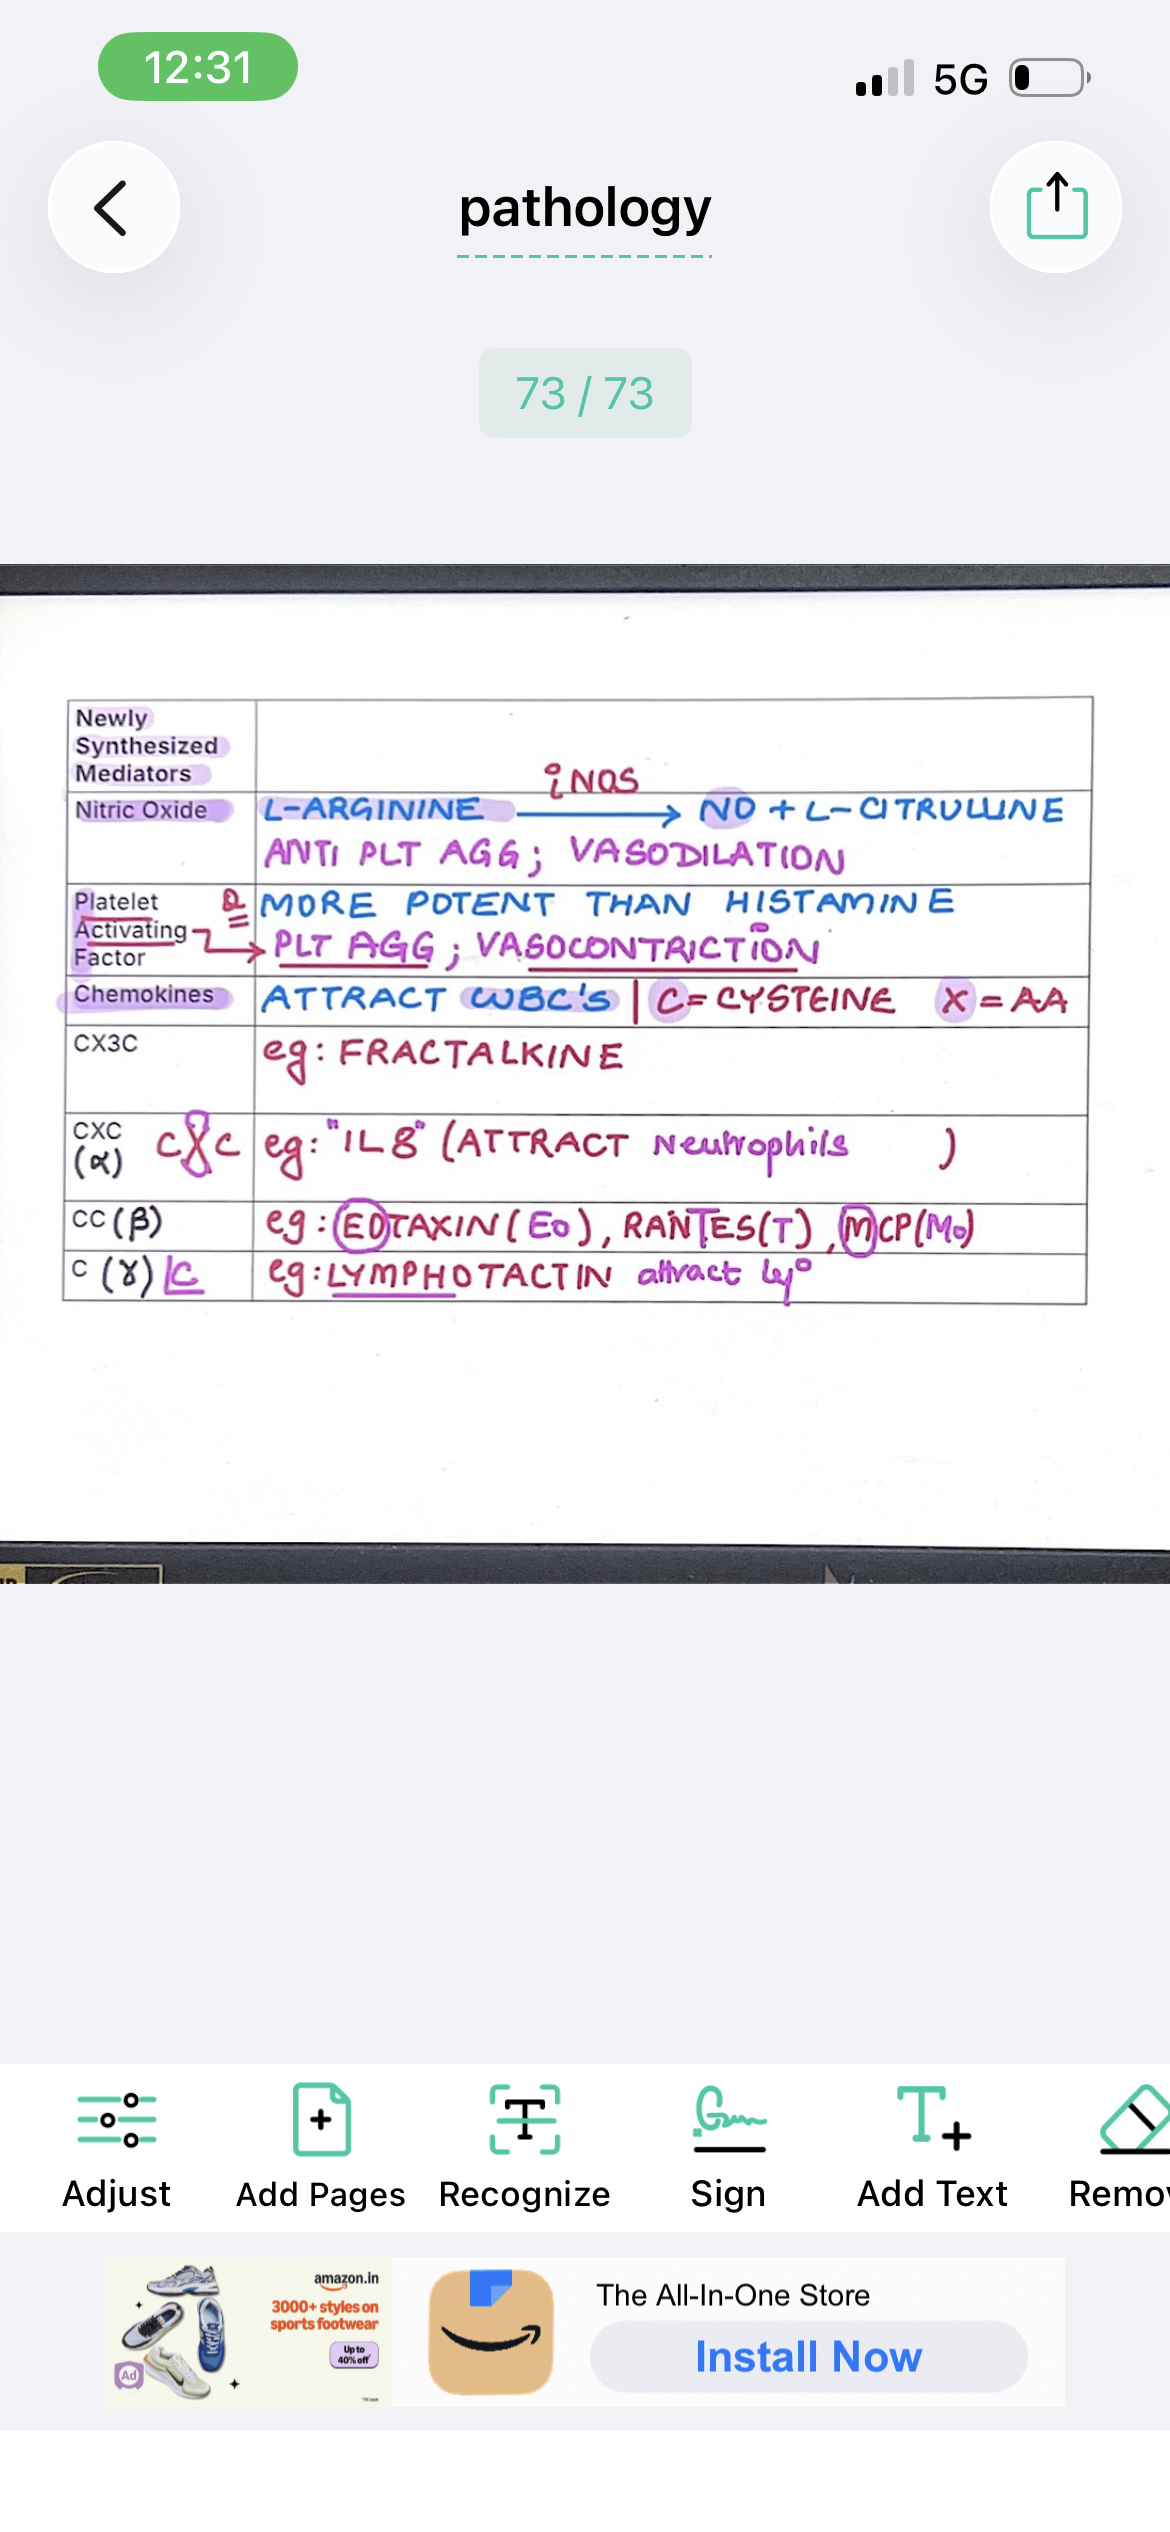 12:31
5G
pathology
73 / 73
Newly
Synthesized
Mediators
iNOS
Nitric Oxide L-ARGININE → NO + L-CITRULLINE
ANTI PLT AGG; VASODILATION
Platelet MORE POTENT THAN HISTAMINE
Activating → PLT AGG ; VASOCONTRICTION
Factor
Chemokines ATTRACT WBC's | C= CYSTEINE X = AA
CX3C eg: FRACTALKINE
CXC CXC eg: "IL8" (ATTRACT Neutrophils )
(α)
CC (β) eg: EOTAXIN (Eo), RANTES(T), MCP(Mo)
C (γ) C eg: LYMPHOTACTIN attract Lyo
Adjust
Add Pages
Recognize
Sign
Add Text
Remov
amazon.in
3000+ styles on
sports footwear
Up to
40% off
Ad
The All-In-One Store
Install Now